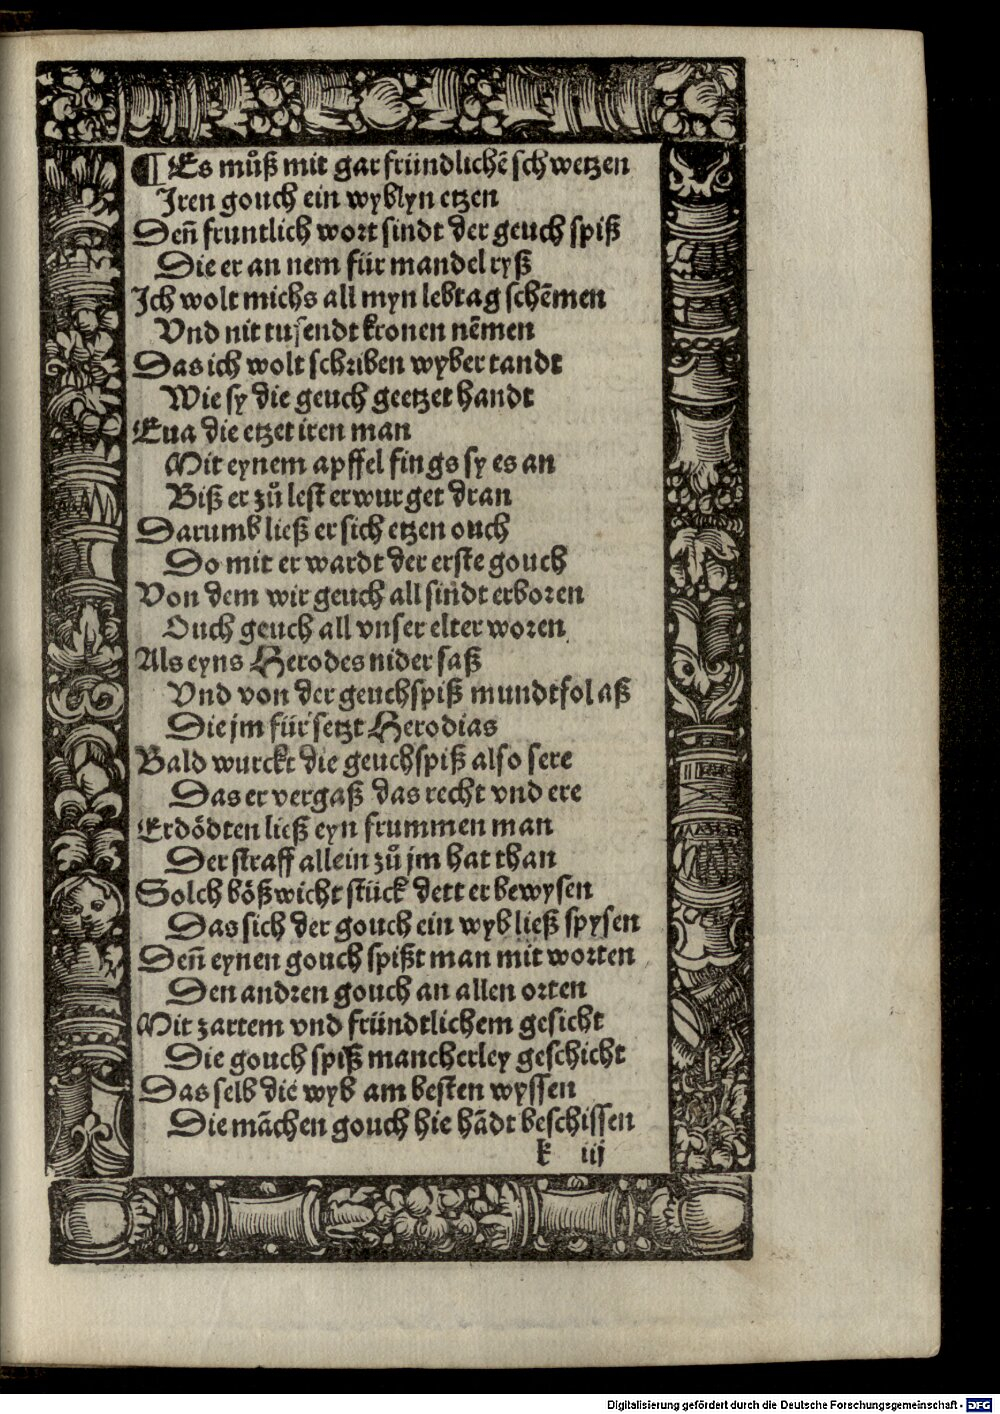 ¶ Es můß mit gar fründlichē schwetzen
Iren gouch ein wyblyn etzen
Deñ fruntlich wort sindt der geuch spiß
Die er an nem für mandel ryß
Ich wolt michs all myn lebtag schēmen
Vnd nit tusendt kronen nēmen
Das ich wolt schriben wyber tandt
Wie sy die geuch geetzet handt
Eua die etzet iren man
Mit eynem apffel fings sy es an
Biß er zů lest erwurget dran
Darumb ließ er sich etzen ouch
Do mit er wardt der erste gouch
Von dem wir geuch all sindt erboren
Ouch geuch all vnser elter woren
Als eyns Herodes nider saß
Vnd von der geuchspiß mundtfol aß
Die jm für setzt Herodias
Bald wurckt die geuchspiß also sere
Das er vergaß das recht vnd ere
Erdödten ließ eyn frummen man
Der straff allein zů jm hat than
Solch bößwicht stück dett er bewysen
Das sich der gouch ein wyb ließ spysen
Deñ eynen gouch spißt man mit worten
Den andren gouch an allen orten
Mit zartem vnd fründtlichem gesicht
Die gouch spiß mancherley geschicht
Das selb die wyb am besten wyssen
Die māchen gouch hie hādt beschissen
k iij
Digitalisierung gefördert durch die Deutsche Forschungsgemeinschaft - DFG